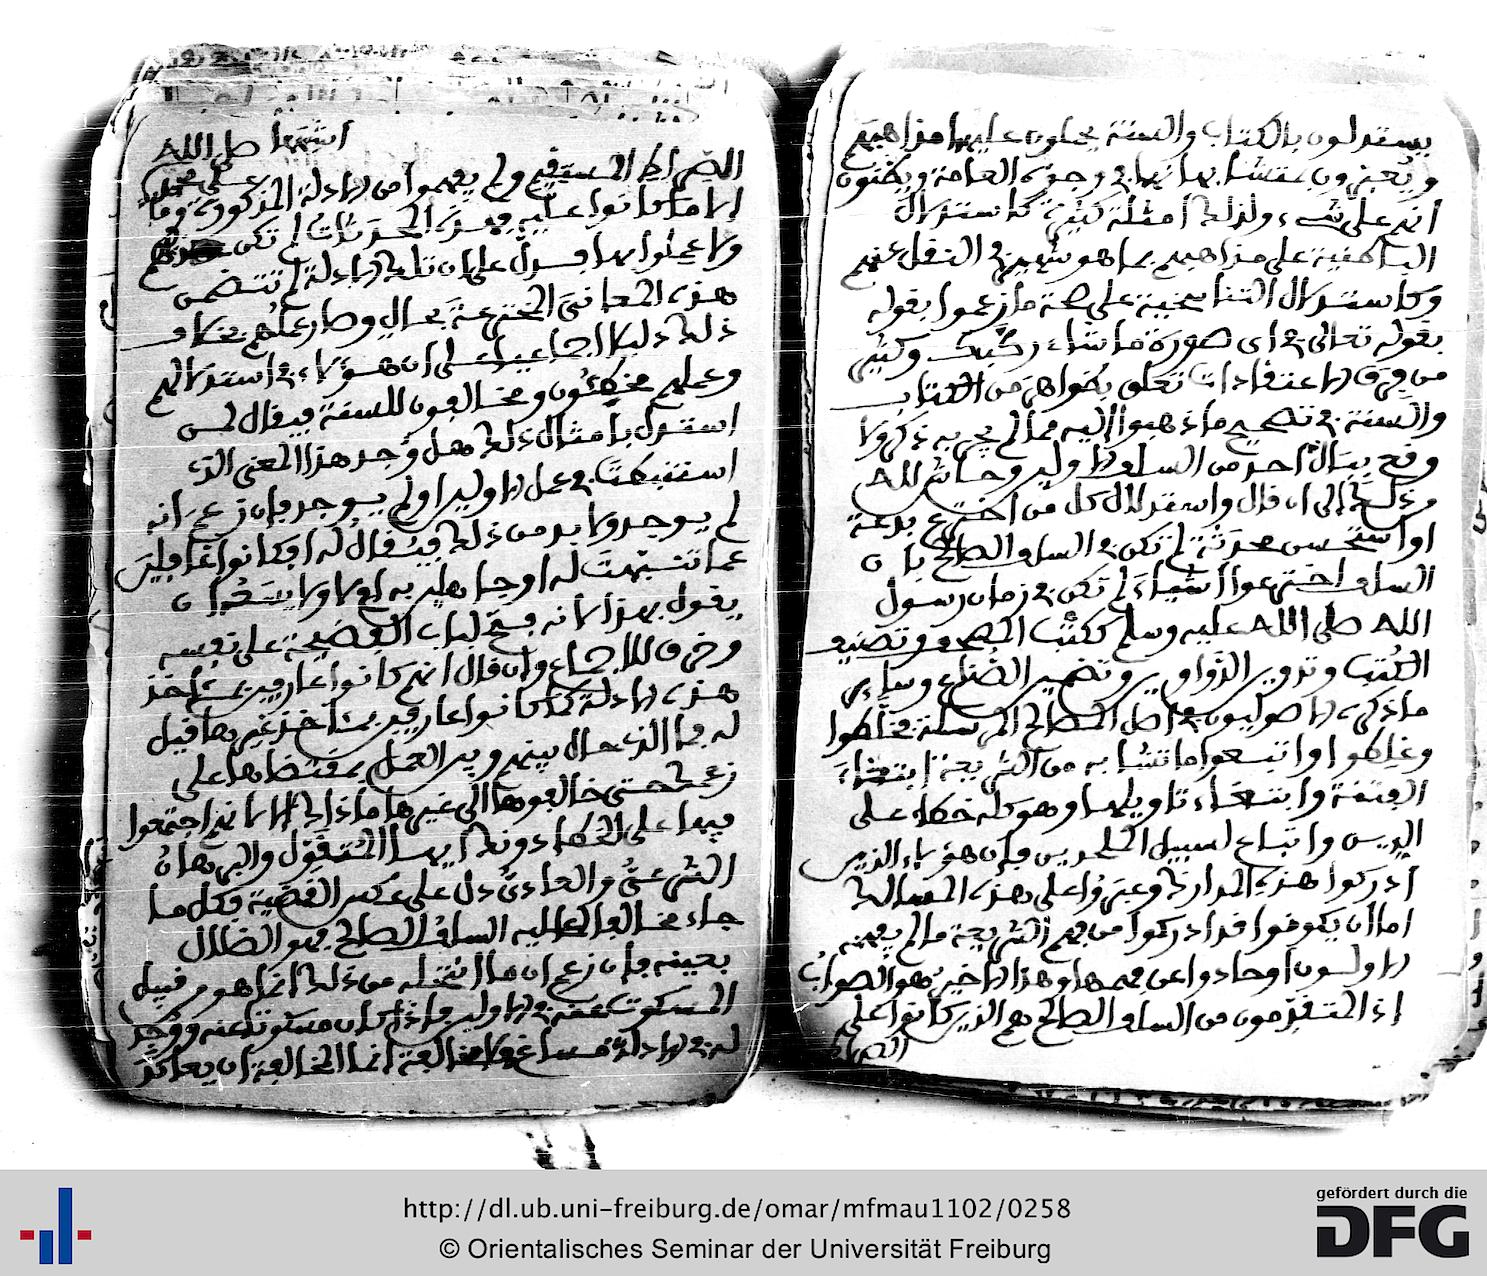 يستدلون بالكتاب والسنة يحملون عليهما مذاهبهم
ويغبرون بمتشابهاتهما في وجوه العامة ويظنون
انهم على شيء ولذلك امثلة كثيرة كاستدلال
الباطنية على مذاهبهم بما هو شهير في النقل عنهم
وكاستدلال التناسخية على صحة ما زعموا بقوله
بقوله تعالى في اي صورة ما شاء ركبك وكثير
من فرق الاعتقادات تعلق بظواهر من الكتاب
والسنة في تصحيح ما ذهبوا اليه مما لم يجر به ذكر ولا
وقع ببال احد من السلف الاولين وحاش لله
من ذلك الى ان قال واستدلال كل من اخترع بدعة
او استحسن محدثة لم تكن في السلف الصالح بان
السلف اخترعوا اشياء لم تكن في زمان رسول
الله صلى الله عليه وسلم ككتب المصحف وتصنيف
الكتب وتدوين الدواوين وتضمين الصناع وسائر
ما ذكره الاصوليون في اصل المصالح المرسلة فخلطوا
وغلطوا واتبعوا ما تشابه من الشريعة ابتغاء
الفتنة وابتغاء تاويلها وهو كله خطا على
الدين واتباع لسبيل الملحدين فان هؤلاء الذين
ادركوا هذه المدارك وعبروا على هذه المسالك
اما ان يكونوا قد ادركوا من فهم الشريعة ما لم يفهمه
الاولون او حادوا عن فهمها وهذا الاخير هو الصواب
اذ المتقدمون من السلف الصالح هم الذين كانوا على
الصراط
الصراط المستقيم ولم يفهموا من الادلة المذكورة وما
الا ما كانوا عليه وهذه المحدثات لم تكن فيهم
ولا عملوا بها فدل على ان تلك الادلة لم تتضمن
هذه المعاني المخترعة بحال وصار عملهم بخلاف
ذلك دليلا اجماعيا على ان هؤلاء في استدلالهم
وعملهم مخطئون ومخالفون للسنة فيقال لمن
استدل بامثال ذلك هل وجد هذا المعنى الذي
استنبطت في عمل الاولين او لم يوجد فان زعم انه
لم يوجد ولا بد من ذلك فيقال له افكانوا غافلين
عما تنبهت له او جاهلين به ام لا ولا يسعه ان
يقول بهذا لانه فتح لباب الفضيحة على نفسه
وخرق للاجماع وان قال انهم كانوا عارفين بمئاخذ
هذه الادلة كما كانوا عارفين بمئاخذ غيرها قيل
له فما الذي حال بينهم وبين العمل بمقتضاها على
زعمك حتى خالفوها الى غيرها ما ذاك الا لانهم اجتمعوا
فيها على الخطا دونك ايها المتقول والبرهان
الشرعي والعادي دال على عكس القضية فكل ما
جاء مخالفا لما عليه السلف الصالح فهو الضلال
بعينه فان زعم ان ما انتحله من ذلك انما هو من قبيل
المسكوت عنه في الاولين واذا كان مسكوتا عنه ووجد
له في الادلة مساغ فلا مخالفة انما المخالفة ان يعاند
http://dl.ub.uni-freiburg.de/omar/mfmau1102/0258
© Orientalisches Seminar der Universität Freiburg
gefördert durch die
DFG